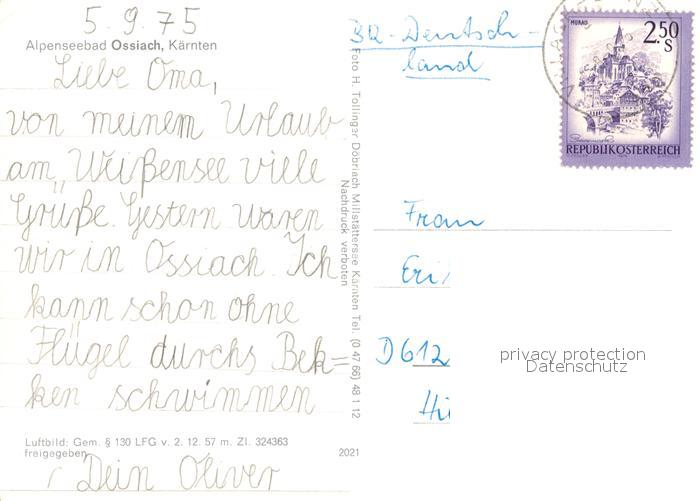 5.9.75
Alpenseebad Ossiach, Kärnten
Liebe Oma,
von meinem Urlaub
am Weißensee viele
Grüße. Gestern waren
wir in Ossiach. Ich
kann schon ohne
Flügel durchs Bek=
ken schwimmen
Luftbild: Gem. § 130 LFG v. 2. 12. 57 m. Zl. 324363
freigegeben
2021
Dein Oliver
Foto H. Tollinger Döbriach Millstättersee Kärnten Tel. (0 47 66) 48 1 12
Nachdruck verboten
BR-Deutsch-
land
MURAU
2.50
S
REPUBLIK ÖSTERREICH
Frau
Eri
D 612
Hi
privacy protection
Datenschutz